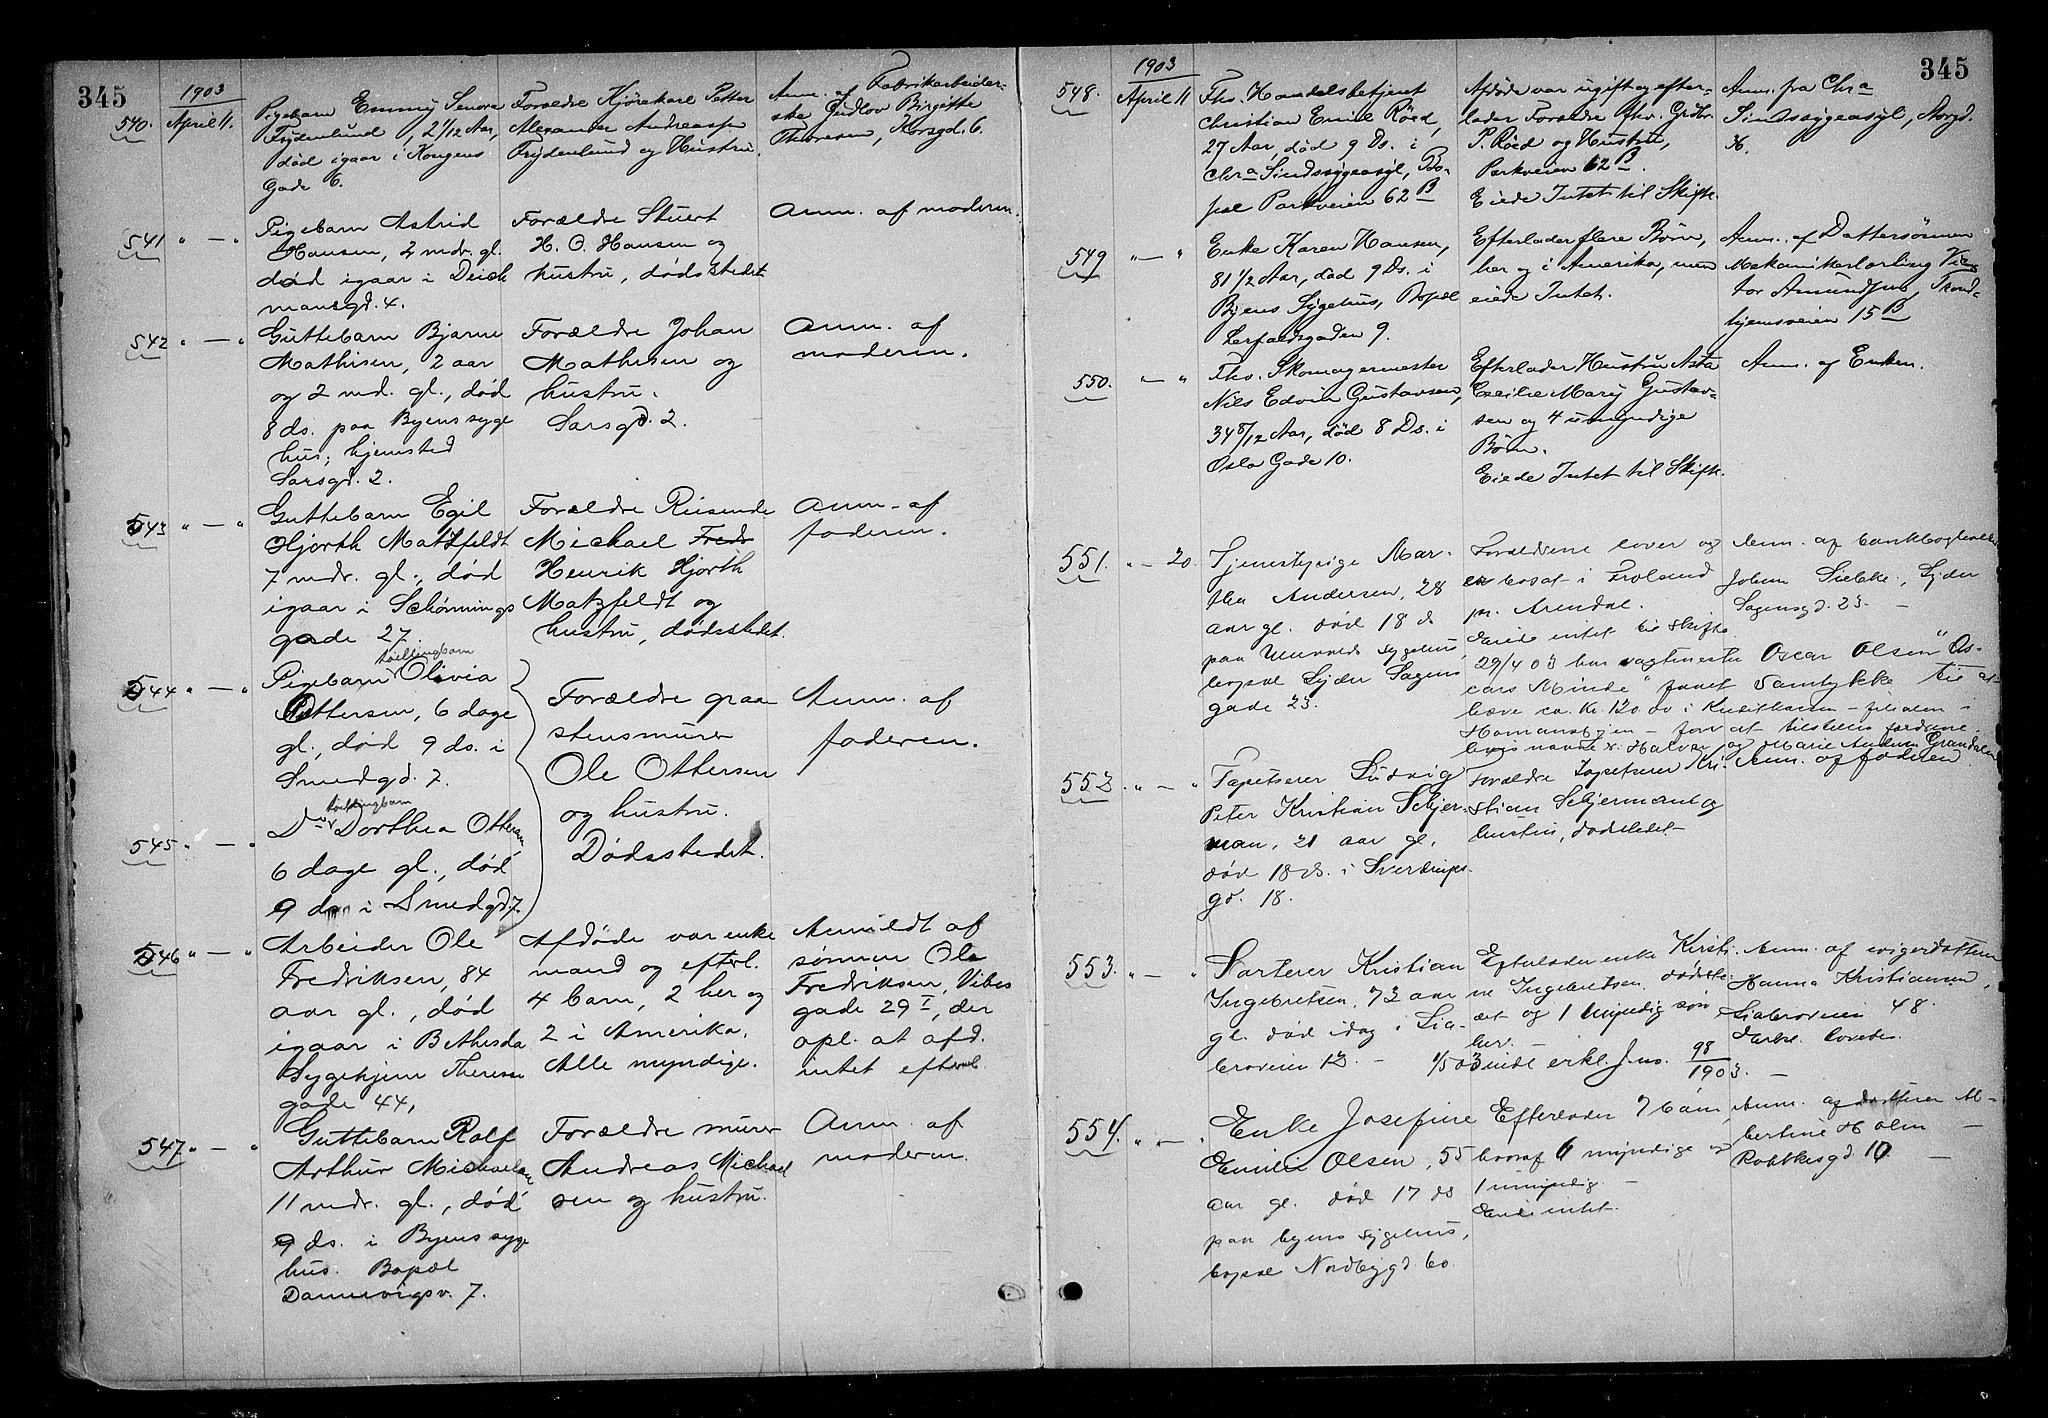 345
1903
540. April 11.
Pigebarn Emmy Senora
Frydenlund, 2 1/12 Aar,
død igaar i Kongens
Gade 6.
Forældre Kjørekarl Petter
Alexander Andreassen
Frydenlund og Hustru.
Anm. af Fabrikarbeider-
ske Gudlov Birgitte
Thoresen, Korsgd. 6.
541 " — "
Pigebarn Astrid
Hansen, 2 mdr. gl.
død igaar i Deich
mansgd. 4.
Forældre Stuert
H. O. Hansen og
hustru, dødsstedet
Anm. af moderen.
542 " — "
Guttebarn Bjarne
Mathisen, 2 aar
og 2 md. gl., død
8 ds. paa Byens syge
hus; hjemsted
Sarsgd. 2.
Forældre Johan
Mathisen og
hustru.
Sarsgd. 2.
Anm. af
moderen.
543 " — "
Guttebarn Egil
Hjorth Matzfeldt
7 mdr. gl., død
igaar i Schønnings
gade 27.
Forældre Reisende
Michael Fredr
Henrik Hjorth
Matzfeldt og
hustru, dødsstedet.
Anm. af
faderen.
544 " — "
tvillingbarn
Pigebarn Olivia
Ottersen, 6 dage
gl., død 9 ds. i
Smedgd. 7.
Forældre graa
stensmurer
Ole Ottersen
og hustru.
Dødsstedet.
Anm. af
faderen.
545 " — "
tvillingbarn
Do Dorthea Ottersen,
6 dage gl., død
9 ds. i Smedgd. 7.
546 " — "
Arbeider Ole
Fredriksen, 84
aar gl., død
igaar i Bethesda
Sygehjem Therese
gade 44,
Afdøde var enke
mand og efterl.
4 barn, 2 her og
2 i Amerika.
Alle myndige.
Anmeldt af
sønnen Ole
Fredriksen, Vibes
gade 29 I, der
opl. at afd.
intet efterl
547 " — "
Guttebarn Rolf
Arthur Michaelsen
11 mdr. gl., død
9 ds. i Byens syge
hus. Bopæl
Dannevigsv. 7.
Forældre murer
Andreas Michael
sen og hustru.
Anm. af
moderen.
345
1903
548. April 11
Fhv. Handelsbetjent
Christian Emil Röed,
27 Aar, død 9 Ds. i
Chra Sindssygeasyl, Bo-
pæl Parkveien 62 B
Afdøde var ugift og efter-
lader Forældre Fhv. Grdbr.
P. Röed og Hustru,
Parkveien 62 B.
Eiede Intet til Skifte.
Anm. fra Chra
Sindssygeasyl, Storgd.
36.
549 " — "
Enke Karen Hansen,
81 1/2 Aar, død 9 Ds. i
Byens Sygehus, Bopæl
Lerfaldsgaden 9.
Efterlader flere Börn,
her og i Amerika, men
eiede Intet.
Anm. af Dattersønnen
Mekanikerlærling Vic-
tor Amundsen, Trond-
hjemsveien 15 B
550. " — "
Fhv. Skomagermester
Nils Edvin Gustavsen,
34 8/12 Aar, død 8 Ds. i
Oslo Gade 10.
Efterlader Hustru Asta
Cecilie Mary Gustav-
sen og 4 umyndige
Börn.
Eiede Intet til Skifte.
Anm. af Enken.
551. " — 20.
Tjenestepige Mar-
tha Andersen, 28
aar gl. død 18 ds
paa Ullevaals sygehus,
bopæl Lyder Sagens
gade 23.
Forældrene lever og
er bosat i Froland
pr. Arendal.
Eiede intet til skifte
Anm. af bankbogholder
Johan Siebke, Lyder
Sagensgd. 23. —
29/4 03 har vagtmester Oscar Olsen "Os-
cars Minde" faaet Samtykke til at
hæve ca. kr. 120.00 i
Homansbyen — for at tilstille forældre-
nes navne: Halvor og Marie Andersen Grandalen
552. " — "
Tapetserer Ludvig
Peter Kristian Schjer-
man, 21 aar gl.
død 18 ds. i Sverdrups-
gd. 18.
Forældre Tapetserer Kri-
stian Schjerman og
hustru, dødstedet —
Anm. af faderen
553. " — "
Sorterer Kristian
Ingebretsen, 73 aar
gl. død idag i Lia-
broveien 13 —
Efterlader enke Kirsti-
ne Ingebretsen, dødste-
det og 1 myndig søn
her. —
Anm. af svigerdatteren
Hanna Kristiansen,
Liabroveien 48.
Erkl. lovedes.
1/5 03 indl erkl. J.no. 98/1903. —
554. " — "
Enke Josefine
Emilie Olsen, 55
aar gl. død 17 ds
paa byens sygehus,
bopæl Nordbygd. 60.
Efterlader 7 børn,
hvoraf 6 myndige og
1 umyndig. —
Eiede intet.
Anm. af datteren Al-
bertine Holm —
Robtkesgd 10 —